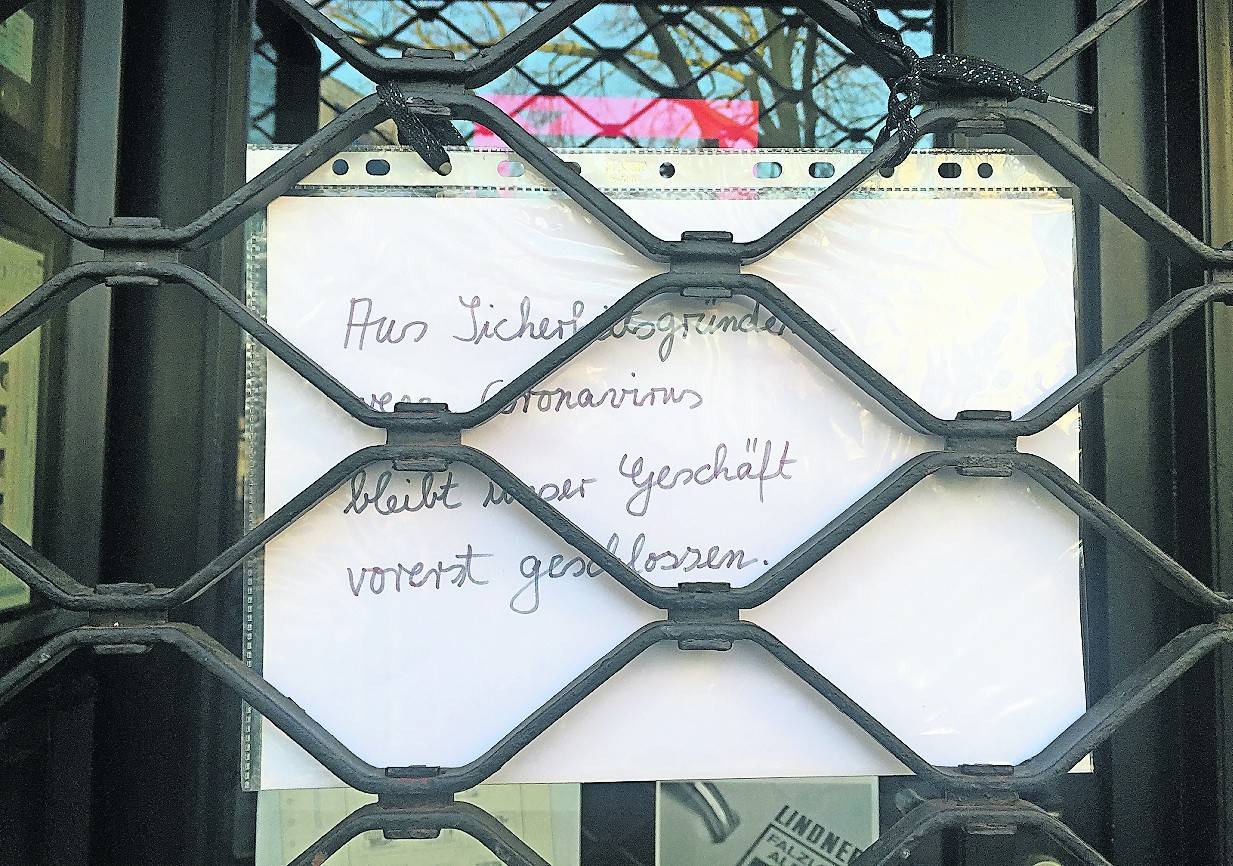 Aus Sicherheitsgründen
Coronavirus
bleibt unser Geschäft
vorerst geschlossen.
LINDNER